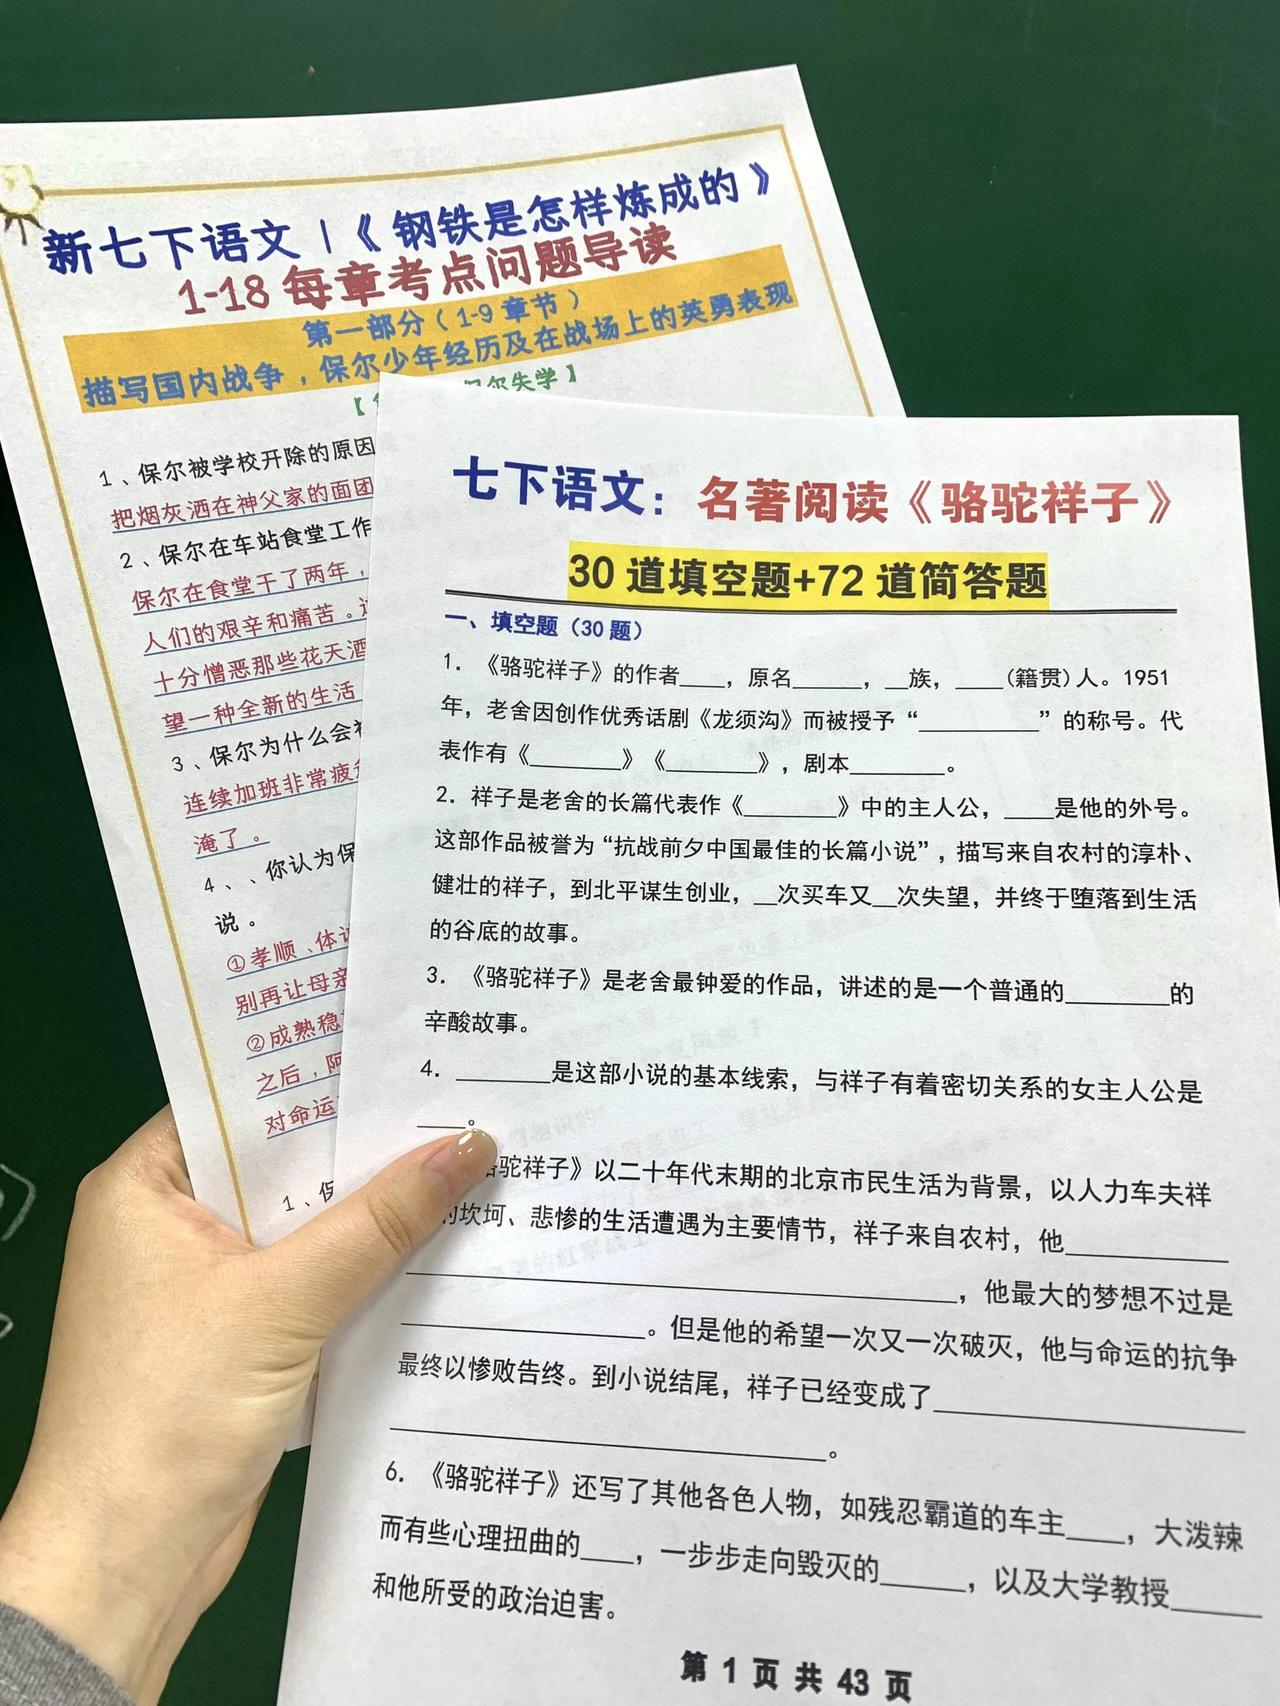 新七下语文 |《 钢铁是怎样炼成的 》
1-18 每章考点问题导读
第一部分（ 1-9 章节 ）
描写国内战争，保尔少年经历及在战场上的英勇表现
【 保尔失学 】
1、保尔被学校开除的原因
把烟灰洒在神父家的面团
2、保尔在车站食堂工作
保尔在食堂干了两年，
人们的艰辛和痛苦。
十分憎恶那些花天酒
望一种全新的生活
3、保尔为什么会被
连续加班非常疲
淹了。
4、、你认为保
说。
①孝顺、体
别再让母亲
②成熟稳
之后，阿
对命运
1、保
七下语文：名著阅读《骆驼祥子》
30 道填空题+72 道简答题
一、填空题（30 题）
1. 《骆驼祥子》的作者____，原名______，__族，____(籍贯)人。1951
年，老舍因创作优秀话剧《龙须沟》而被授予“__________”的称号。代
表作有《________》《________》，剧本________。
2. 祥子是老舍的长篇代表作《________》中的主人公，____是他的外号。
这部作品被誉为“抗战前夕中国最佳的长篇小说”，描写来自农村的淳朴、
健壮的祥子，到北平谋生创业，__次买车又__次失望，并终于堕落到生活
的谷底的故事。
3. 《骆驼祥子》是老舍最钟爱的作品，讲述的是一个普通的________的
辛酸故事。
4. ________是这部小说的基本线索，与祥子有着密切关系的女主人公是
____。
骆驼祥子》以二十年代末期的北京市民生活为背景，以人力车夫祥
的坎坷、悲惨的生活遭遇为主要情节，祥子来自农村，他____________
________________________________________，他最大的梦想不过是
__________________。但是他的希望一次又一次破灭，他与命运的抗争
最终以惨败告终。到小说结尾，祥子已经变成了______________________
________________________________。
6. 《骆驼祥子》还写了其他各色人物，如残忍霸道的车主____，大泼辣
而有些心理扭曲的____，一步步走向毁灭的______，以及大学教授_______
和他所受的政治迫害。
第 1 页 共 43 页